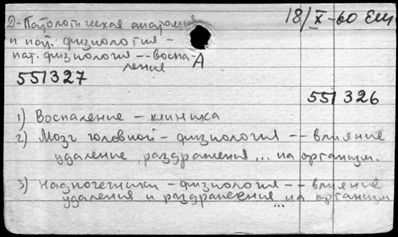 2-Патологическая анатомия
18/X-60 Еш
и пат. физиология -
пат. физиология -- воспа-
ление
А
551327
551326
1) Воспаление - клиника
2) Мозг головной - физиология -- влияние
удаление, раздражения... на организм.
3) Надпочечники - физиология -- влияние
удаления и раздражения... на организм